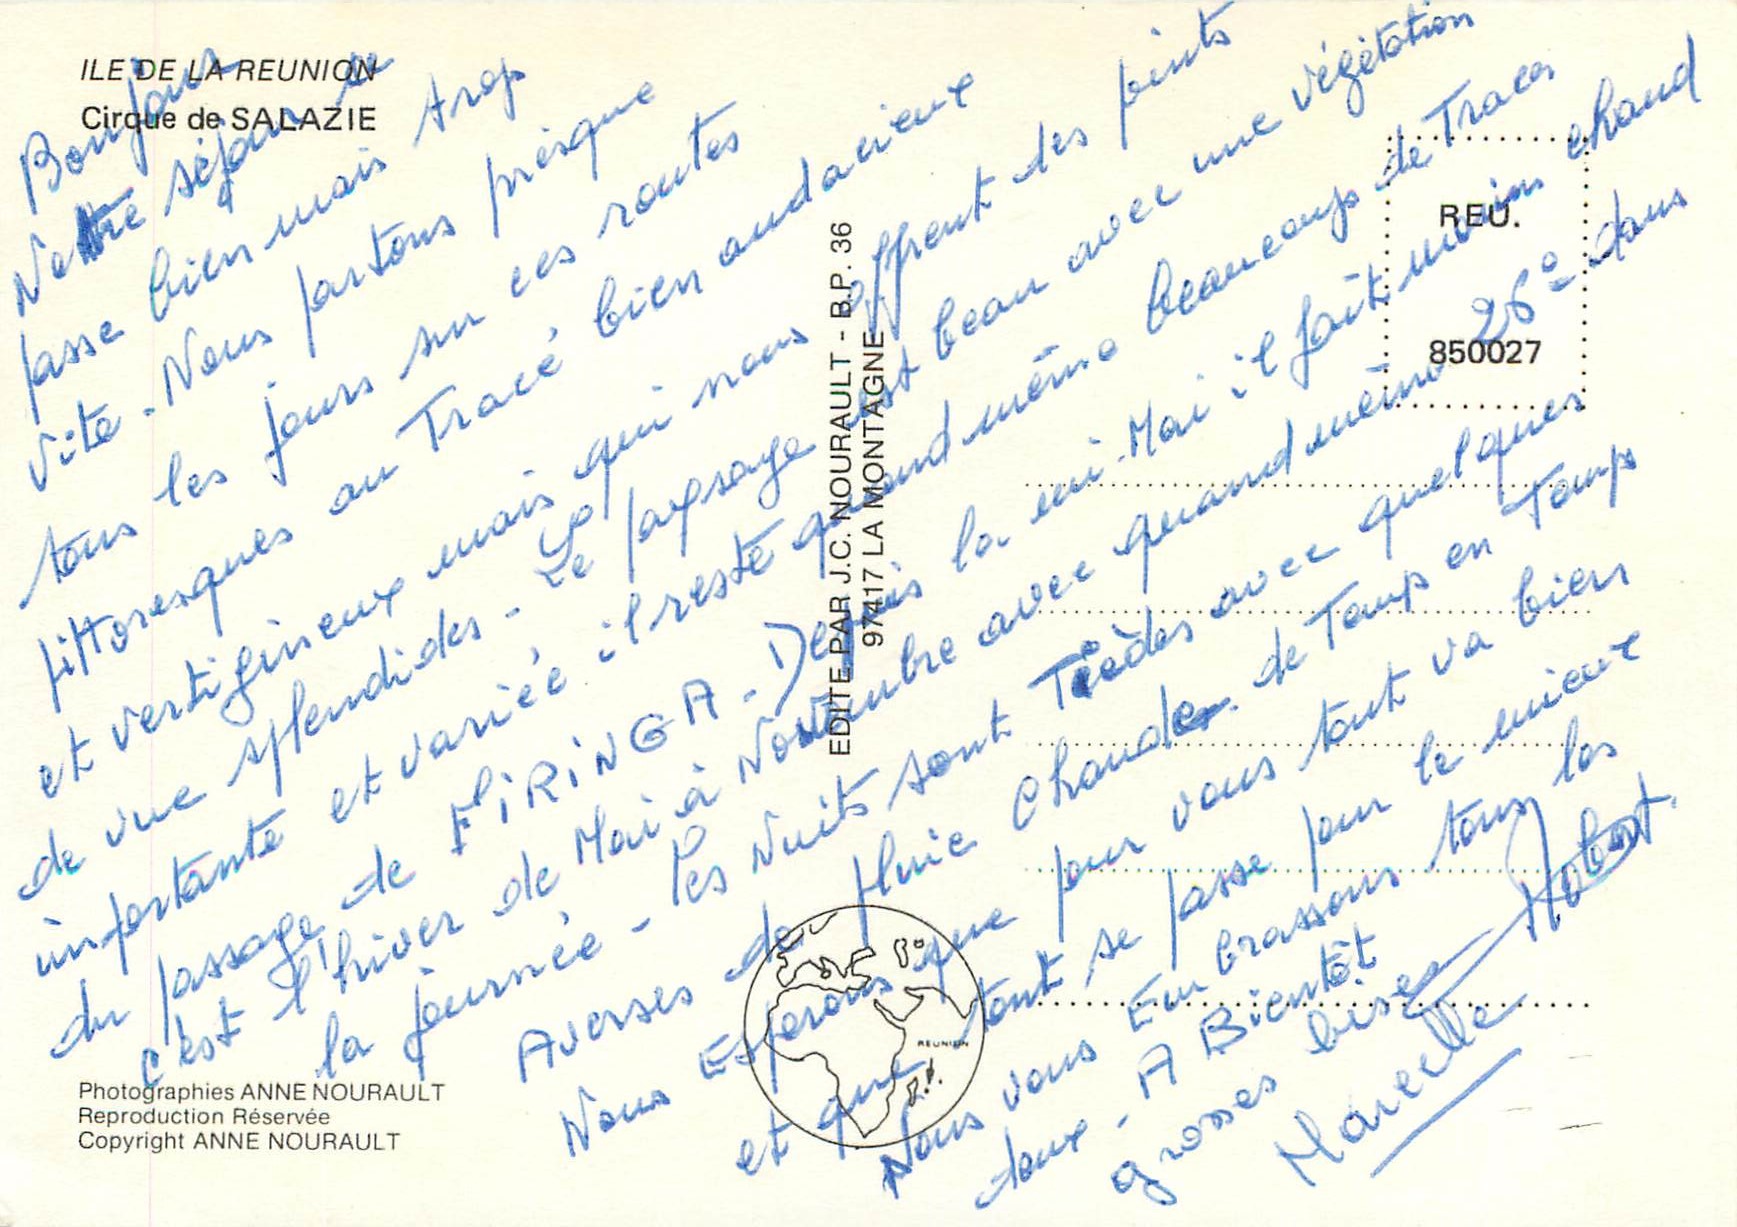 ILE DE LA REUNION
Cirque de SALAZIE
Bonjour
Notre séjour se
passe bien mais trop
vite - Nous partons presque
tous les jours sur ces routes
pittoresques au Tracé bien audacieux
et vertigineux mais qui nous offrent des points
de vue splendides - Le paysage est beau avec une végétation
importante et variée il reste quand même beaucoup de Traces
du passage de FIRINGA - Depuis la mi-Mai il fait moins chaud
c'est l'hiver de Mai à Novembre avec quand même 26° dans
la journée - Les Nuits sont Tièdes avec quelques
Averses de pluie Chaudes de Temps en Temps
Nous Esperons que pour vous tout va bien
et que tout se passe pour le mieux
Nous vous Embrassons tous les
deux - A Bientôt
grosses bises
Marcelle
REU.
850027
EDITE PAR J.C. NOURAULT - B.P. 36
97417 LA MONTAGNE
REUNION
Photographies ANNE NOURAULT
Reproduction Réservée
Copyright ANNE NOURAULT